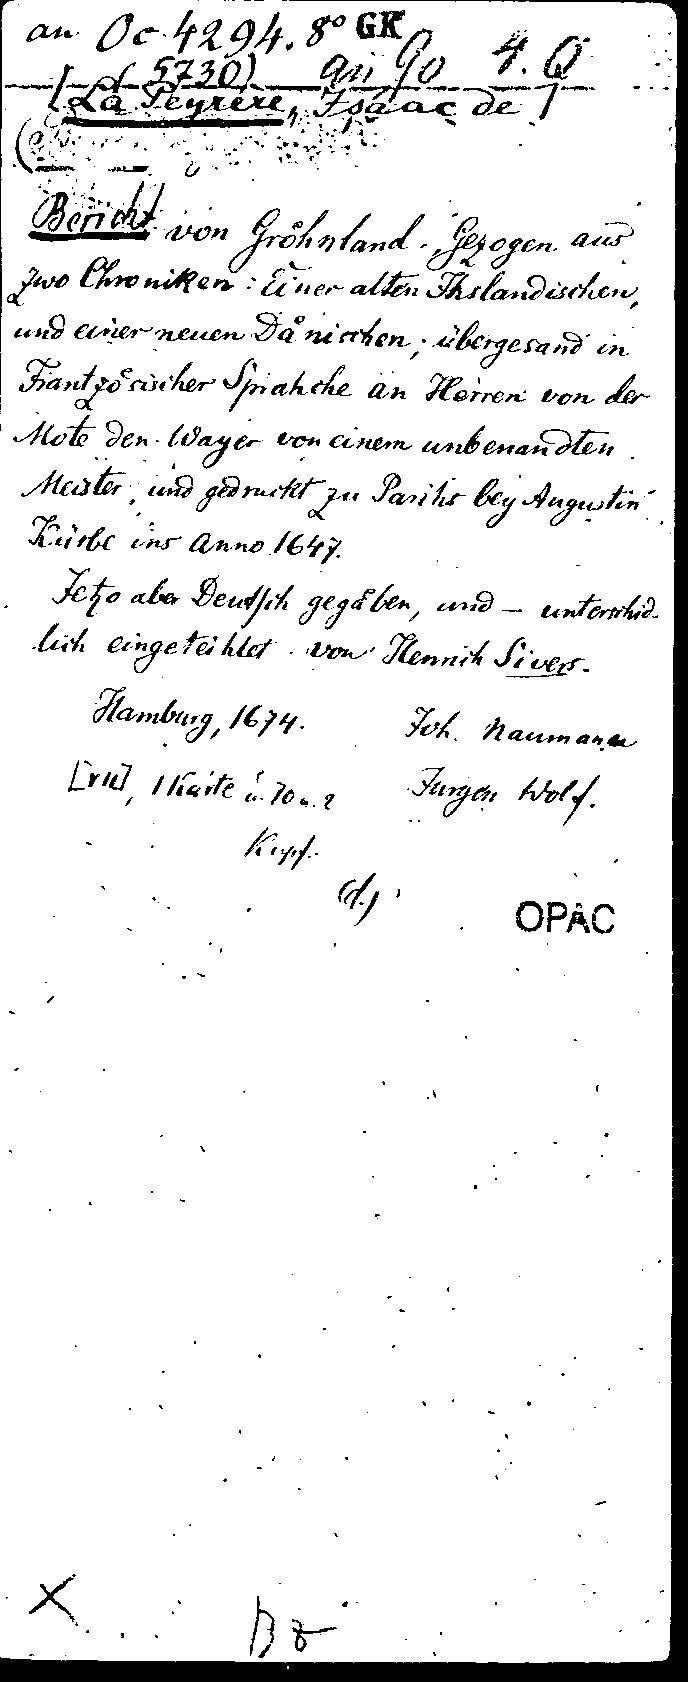 an Oc 4294. 8° GK
5730) an Go 4. Q
[La Peyrère, Isaac de]
Bericht von Gröhnland. Gezogen aus
zwo Chroniken: Einer alten Ihslandischen,
und einer neuen Dånischen; übergesand in
Frantzöscischer Sprahche an Herren von der
Mote den Wayer von einem unbenandten
Meister, und gedruckt zu Parihs bey Augustin
Kürbe ins Anno 1647.
Jetzo aber Deutsch gegåben, und – unterschid-
lich eingeteihlet von Henrich Sivers.
Hamburg, 1674. Joh. Naumann
1 Karte u. 70 u. 2 Jurgen Wolf.
Kupf.
(d.)
OPAC
X
Bz